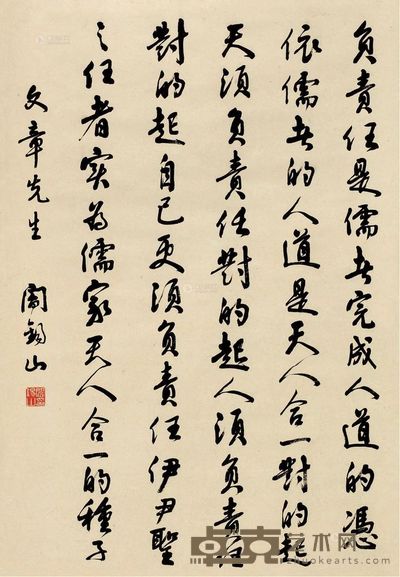 負責任是儒者完成人道的憑
依儒者的人道是天人合一對的起
天須負責任對的起人須負責任
對的起自己更須負責任伊尹聖
之任者实為儒家天人合一的種子
文章先生
閻錫山
卓克艺术网